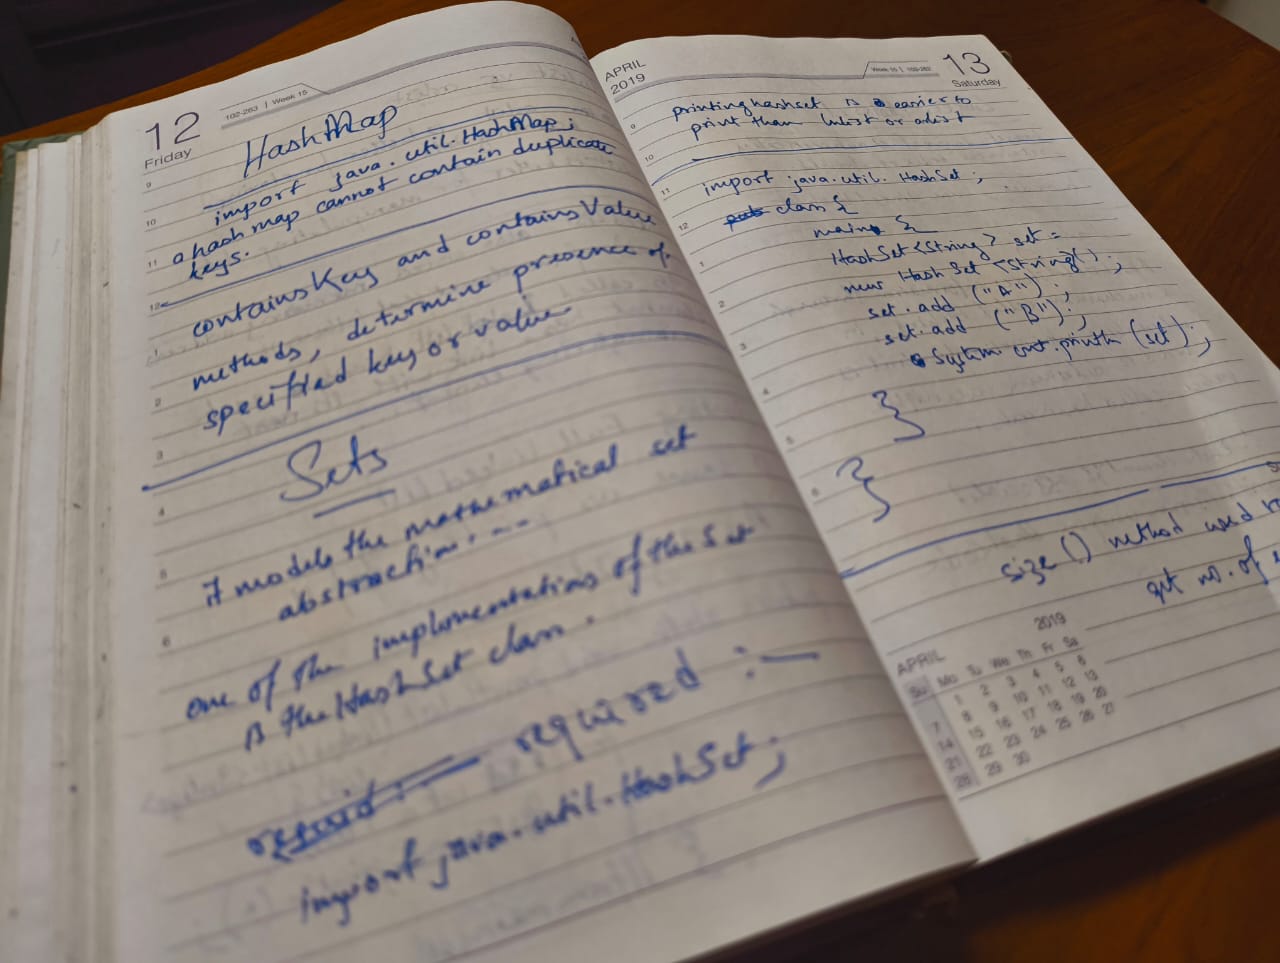 12
Friday
102-263 | Week 15
HashMap
import java.util.HashMap;
a hashmap cannot contain duplicate
keys.
containsKey and containsValue
methods, determine presence of
specified key or value
Sets
it models the mathematical set
abstraction...
one of the implementations of the Set
is the HashSet class.
required :—
import java.util.HashSet;
9
10
11
12
1
2
3
4
5
6
APRIL
2019
Week 15 | 103-262
13
Saturday
printing hashset is easier to
print than
import java.util.HashSet;
class {
main {
HashSet<String> set =
new HashSet<String();
set.add ("A");
set.add ("B");
System out.println (set);
}
}
size() method used
get no. of
9
10
11
12
1
2
3
4
5
6
APRIL 2019
Su Mo Tu We Th Fr Sa
1 2 3 4 5 6
7 8 9 10 11 12 13
14 15 16 17 18 19 20
21 22 23 24 25 26 27
28 29 30